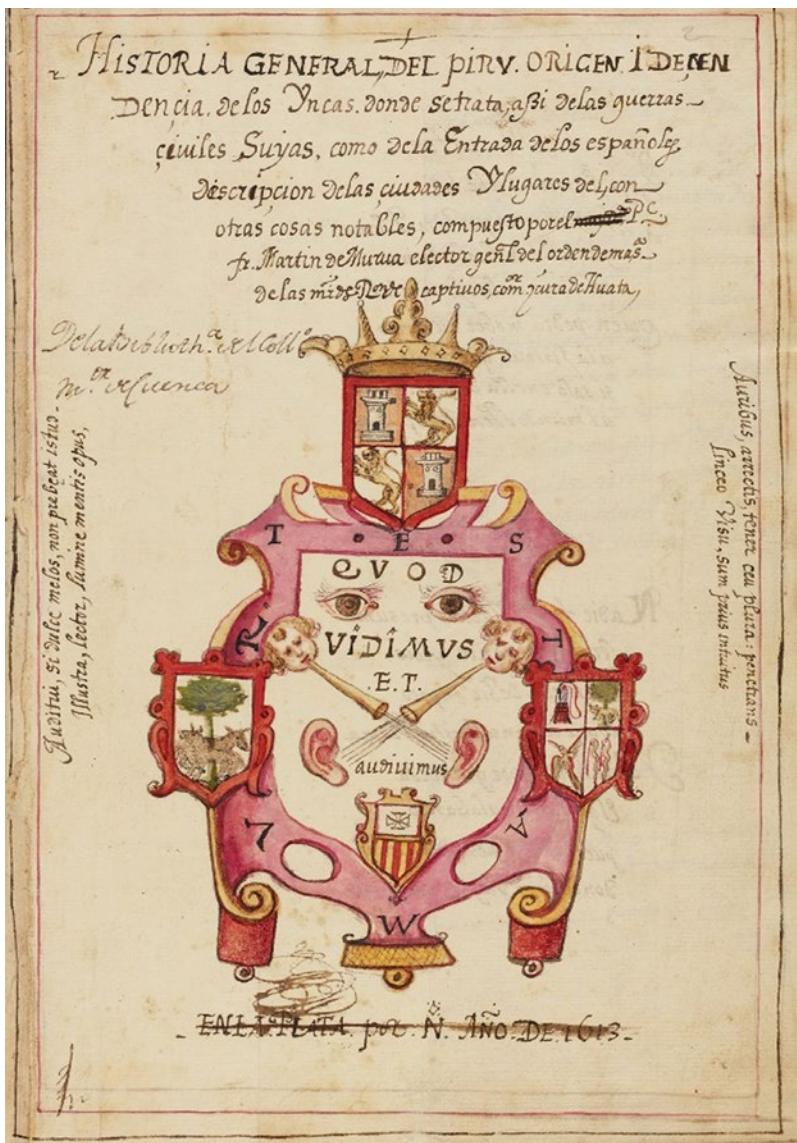 HISTORIA GENERAL, DEL PIRV. ORIGEN. I DECEN
Dençia. de los Yncas. donde se trata, aßi de las guerras
çiviles Suyas, como de la Entrada de los españoles,
descripcion de las çiudades Y lugares del, con
otras cosas notables, compuesto por el P.e
fr. Martin de Murua elector genl. del orden de
de las captiuos, y cura de Huata,
De la Biblioth.a del Coll.o
m.or de Cuenca
Auditui, si dulce melos, non prebeat istud.
Illustra, lector, lumine mentis opus,
Auribus, arrectis, tener ceu plura: penetrans
Linceo Visu, sum prius intuitus
T E S
QVOD
R T
VIDIMVS
.E.T.
audiuimus
7 A
W
EN LA PLATA. por. Ñ. AÑO. DE. 1613.